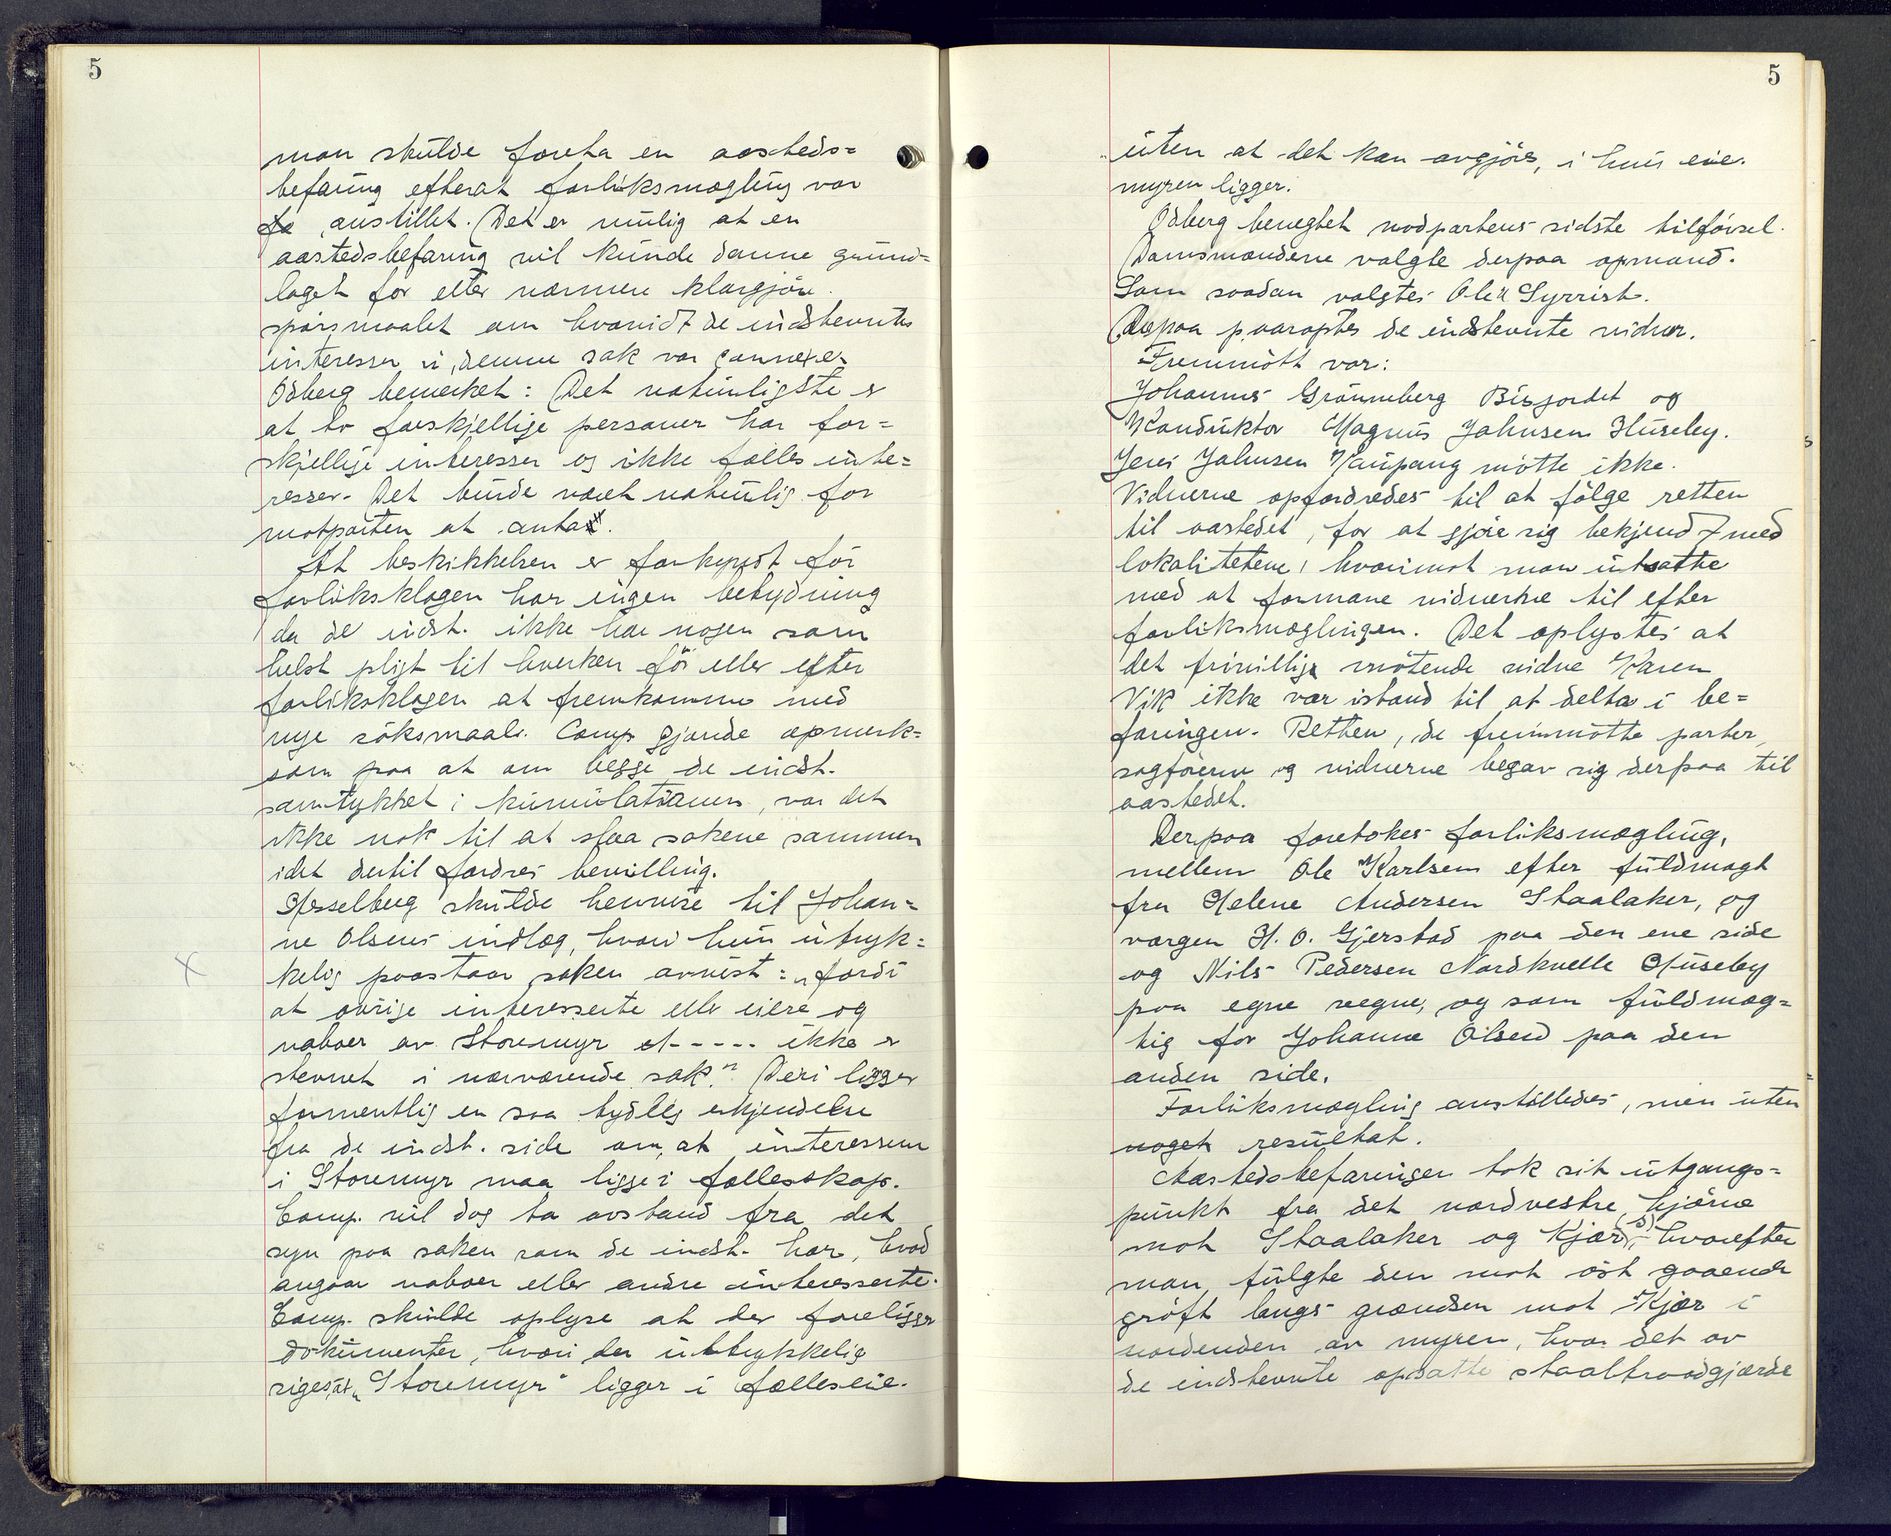 5
man skulde foreta en aasteds=
befaring efterat forliksmægling var
fo anstillet. Det er mulig at en
aastedsbefaring vil kunde danne grund=
laget for eller nærmere klargjöre
spörsmaalet om hvorvidt de indstevntes
interesser i denne sak var connexe.
Odberg bemerket: Det naturligste er
at to forskjellige personer har for=
skjellige interesser og ikke fælles inte=
resser. Det burde været naturlig for
motparten at anta.
At beskikkelsen er forkyndt för
forliksklagen har ingen betydning
da de indst. ikke har nogen som
helst pligt til hverken för eller efter
forliksklagen at fremkomme med
nye söksmaal. Comp. gjorde opmerk=
som paa at om begge de indst.
samtykket i kumulationen, var det
ikke nok til at slaa sakene sammen
idet dertil fordres bevilling.
Hesselberg skulde henvise til Johan=
ne Olsens indlæg, hvori hun utryk=
kelig paastaar saken avvist: „fordi
at övrige interesserte eller eiere og
naboer av Storemyr et - - - - - ikke er
stevnet i nærværende sak." Deri ligger
formentlig en saa tydelig erkjendelse
fra de indst. side om, at interessene
i Storemyr maa ligge i fællesskap.
Comp. vil dog ta avstand fra det
syn paa saken som de indst. har, hvad
angaar naboer eller andre interesserte.
Comp. skulde oplyse at der foreligger
dokumenter, hvori der uttrykkelig
siges, at „Storemyr" ligger i fælleseie.
5
uten at det kan avgjöres, i hvis eie
myren ligger.
Odberg benegtet motpartens sidste tilförsel.
Domsmændene valgte derpaa opmand.
Som saadan valgtes Ole Syrrist.
Derpaa paaroptes de indstevnte vidner.
Fremmött var:
Johannes Grönneberg Bisjordet og
Konduktör Magnus Johnsen Huseby.
Jens Johnsen Kaupang mötte ikke.
Vidnerne opfordredes til at fölge retten
til aastedet, for at gjöre sig bekjendt med
lokalitetene, hvorimot man utsatte
med at formane vidnerne til efter
forliksmæglingen. Det oplystes at
det frivillige mötende vidne Karen
Vik ikke var istand til at delta i be=
faringen. Retten, de fremmötte parter,
sagförerne og vidnerne begav sig derpaa til
aastedet.
Derpaa foretokes forliksmægling,
mellem Ole Karlsen efter fuldmagt
fra Helene Andersen Staalaker, og
værgen H. O. Gjerstad paa den ene side
og Nils Pedersen Nordkvelle Huseby
paa egne vegne, og som fuldmæg=
tig for Johanne Olsen paa den
anden side.
Forliksmægling anstilledes, men uten
noget resultat.
Aastedsbefaringen tok sit utgangs=
punkt fra det nordvestre hjörne
mot Staalaker og Kjær, hvorefter
man fulgte den mot öst gaaende
gröft langs grændsen mot Kjær i
nordenden av myren, hvor det av
de indstevnte opsatte staaltraadgjærde